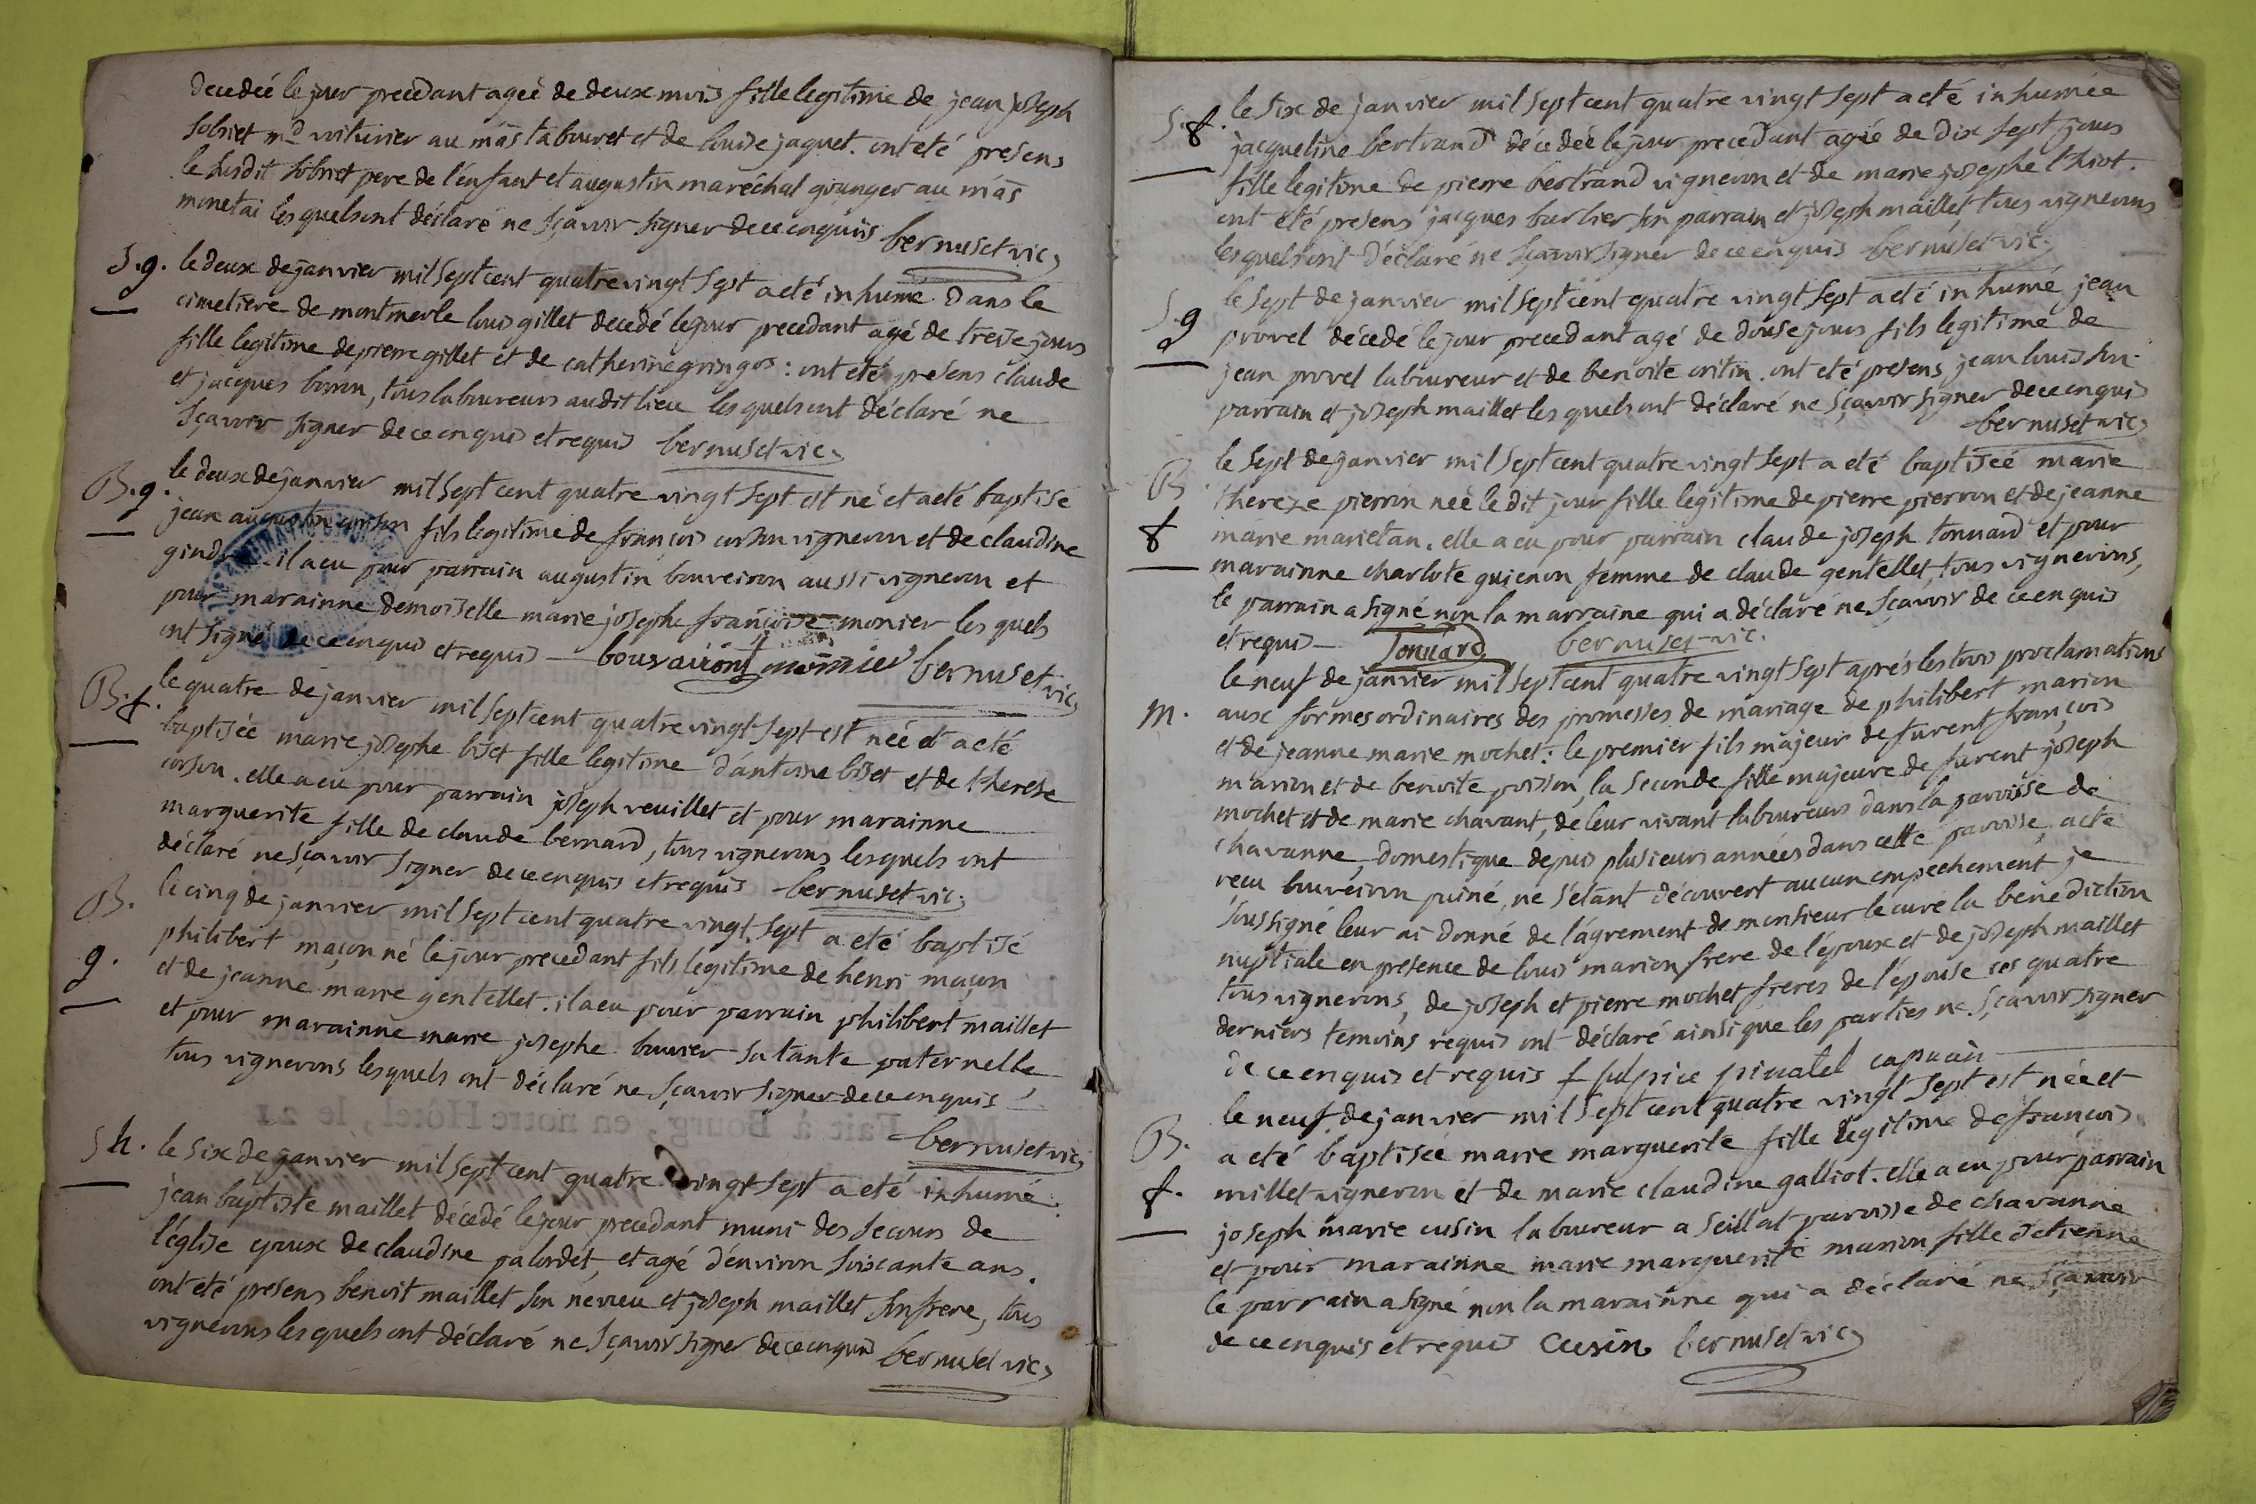 decedée le jour precedant ageé de deux mois fille legitime de jean joseph
solnet md voiturier au mas tabouret et de louise jaquet. ont eté presens
le susdit solnet pere de l'enfant et augustin maréchal granger au mas
monetai lesquels ont déclaré ne sçavoir signer de ce enquis bernuset vic.
S. g. le deux de janvier mil sept cent quatre vingt sept a eté inhumé dans le
cimetiere de montmerle louis gillet decedé le jour precedant agé de treise jours
fille legitime de pierre gillet et de catherine gringos : ont eté presens claude
et jacques boron, tous laboureurs audit lieu lesquels ont déclaré ne
sçavoir signer de ce enquis et requis bernuset vic.
B. g. le deux de janvier mil sept cent quatre vingt sept est né et a eté baptisé
jean augustin corson fils legitime de françois corson vigneron et de claudine
il a eu pour parrain augustin bouveiron aussi vigneron et
pour marainne demoiselle marie josephe françoise monier lesquels
ont signé de ce enquis et requis — bouvairon monnier bernuset vic.
B. f. le quatre de janvier mil sept cent quatre vingt sept est née et a eté
baptisée marie josephe biset fille legitime d'antoine biset et de therese
corson. elle a eu pour parrain joseph reuillet et pour marainne
marguerite fille de claude bernard, tous vignerons lesquels ont
déclaré ne sçavoir signer de ce enquis et requis bernuset vic.
B. le cinq de janvier mil sept cent quatre vingt sept a eté baptisé
philibert maçon né le jour precedant fils legitime de henri maçon
g. et de jeanne marie gentellet. il a eu pour parrain philibert maillet
et pour marainne marie josephe bouvier sa tante paternelle
tous vignerons lesquels ont déclaré ne sçavoir signer de ce enquis
bernuset vic.
S h. le six de janvier mil sept cent quatre vingt sept a eté inhumé
jean baptiste maillet décedé le jour precedant muni des secours de
l'église epoux de claudine palordet, et agé d'environ soixante ans.
ont eté presens benoit maillet son neveu et joseph maillet son frere, tous
vignerons lesquels ont déclaré ne sçavoir signer de ce enquis bernuset vic.
S. f. le six de janvier mil sept cent quatre vingt sept a eté inhumée
jacqueline bertrand décedée le jour precedant ageé de dix sept jours
fille legitime de pierre bertrand vigneron et de marie josephe thiot.
ont eté presens jacques burlier son parrain et joseph maillet tous vignerons
lesquels ont déclaré ne sçavoir signer de ce enquis bernuset vic.
le sept de janvier mil sept cent quatre vingt sept a eté inhumé jean
S. g provel décedé le jour precedant agé de douse jours fils legitime de
jean provel laboureur et de benoite critin. ont eté presens jean louis son
parrain et joseph maillet lesquels ont déclaré ne sçavoir signer de ce enquis
bernuset vic.
B. le sept de janvier mil sept cent quatre vingt sept a eté baptiseé marie
thereze pierron neé le dit jour fille legitime de pierre pierron et de jeanne
f marie marietan. elle a eu pour parrain claude joseph tonnard et pour
marainne charlote guienon femme de claude gentellet, tous vignerons,
le parrain a signé non la marraine qui a déclaré ne sçavoir de ce enquis
et requis — Tonnard bernuset vic.
le neuf de janvier mil sept cent quatre vingt sept aprés les trois proclamations
m. aux formes ordinaires des promesses de mariage de philibert marion
et de jeanne marie mochet : le premier fils majeur de furent françois
marion et de benoite poisson, la seconde fille majeure de furent joseph
mochet et de marie chavant, de leur vivant laboureurs dans la paroisse de
chavanne, domestique depuis plusieurs années dans cette paroisse a eté
reçu bouveiron puiné, ne s'etant découvert aucun empéchement je
soussigné leur ai donné de l'agrement de monsieur le curé la benediction
nuptiale en presence de louis marion frere de l'époux et de joseph maillet
tous vignerons, de joseph et pierre mochet freres de l'épouse ces quatre
derniers temoins requis ont déclaré ainsi que les parties ne sçavoir signer
de ce enquis et requis f sulpice pinatel capucin
le neuf de janvier mil sept cent quatre vingt sept est née et
B. a eté baptisée marie marguerite fille legitime de françois
f. millet vigneron et de marie claudine galliot. elle a eu pour parrain
joseph marie cusin laboureur a seillat paroisse de chavanne
et pour marainne marie marguerite marion fille d'etienne
le parrain a signé non la marainne qui a déclaré ne sçavoir
de ce enquis et requis Cusin bernuset vic.